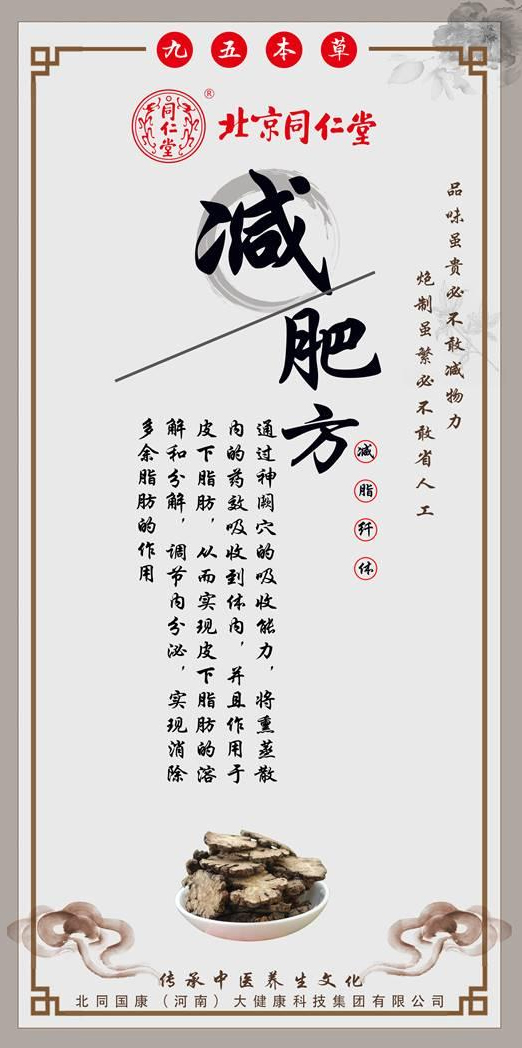 九五本草
同仁堂
®
北京同仁堂
减肥方
减脂纤体
品味虽贵必不敢减物力
炮制虽繁必不敢省人工
通过神阙穴的吸收能力，将熏蒸散
内的药效吸收到体内，并且作用于
皮下脂肪，从而实现皮下脂肪的溶
解和分解，调节内分泌，实现消除
多余脂肪的作用
传承中医养生文化
北同国康（河南）大健康科技集团有限公司